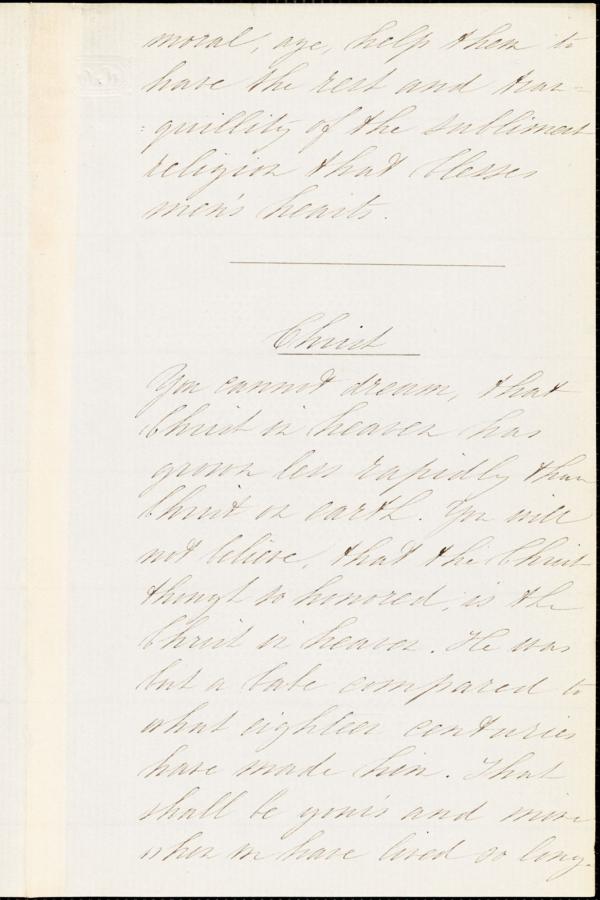 moral, age, help them to
have the rest and tran-
:quillity of the sublimest
religion that blesses
men's hearts.
Christ
You cannot dream, that
Christ in heaven has
grown less rapidly than
Christ on earth. You will
not believe, that the Christ
thought so honored, is the
Christ in heaven. He was
but a babe compared to
what eighteen centuries
have made him. That
shall be your's and mine
when we have lived so long.